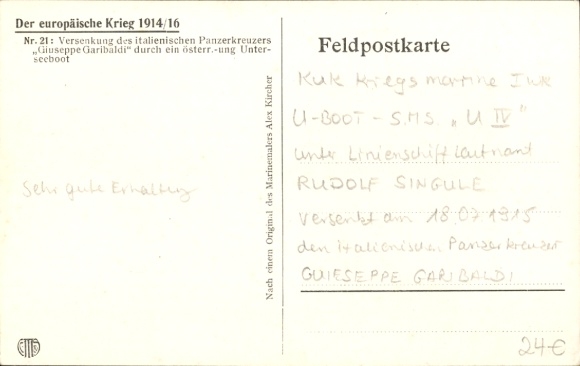 Der europäische Krieg 1914/16
Nr. 21: Versenkung des italienischen Panzerkreuzers
„Giuseppe Garibaldi" durch ein österr.-ung Unter-
seeboot
Sehr gute Erhaltung
Nach einem Original des Marinemalers Alex Kircher
Feldpostkarte
KuK Kriegsmarine
U-BOOT - S.M.S. „U IV"
unter Linienschiffleutnant
RUDOLF SINGULE
versenkt am 18.07.1915
den italienischen Panzerkreuzer
GUIESEPPE GARIBALDI
24€